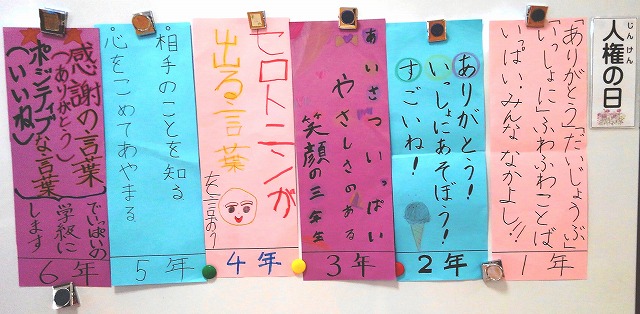 じんけん
人権の日
「ありがとう」「だいじょうぶ」
「いっしょに」ふわふわことば
いっぱい みんな なかよし!!
1年
ありがとう!
いっしょにあそぼう!
すごいね!
2年
あいさついっぱい
やさしさのある
笑顔の三年生
3年
セロトニンが
出る言葉
を言おう
4年
相手のことを知る
心をこめてあやまる
5年
感謝の言葉
(ありがとう)
ポジティブな言葉
(いいね)
でいっぱいの
学級に
します
6年